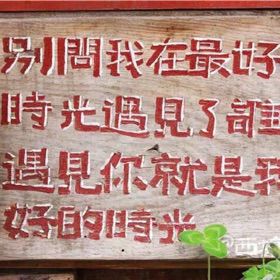 別問我在最好
時光遇見了誰
遇見你就是我
好的時光